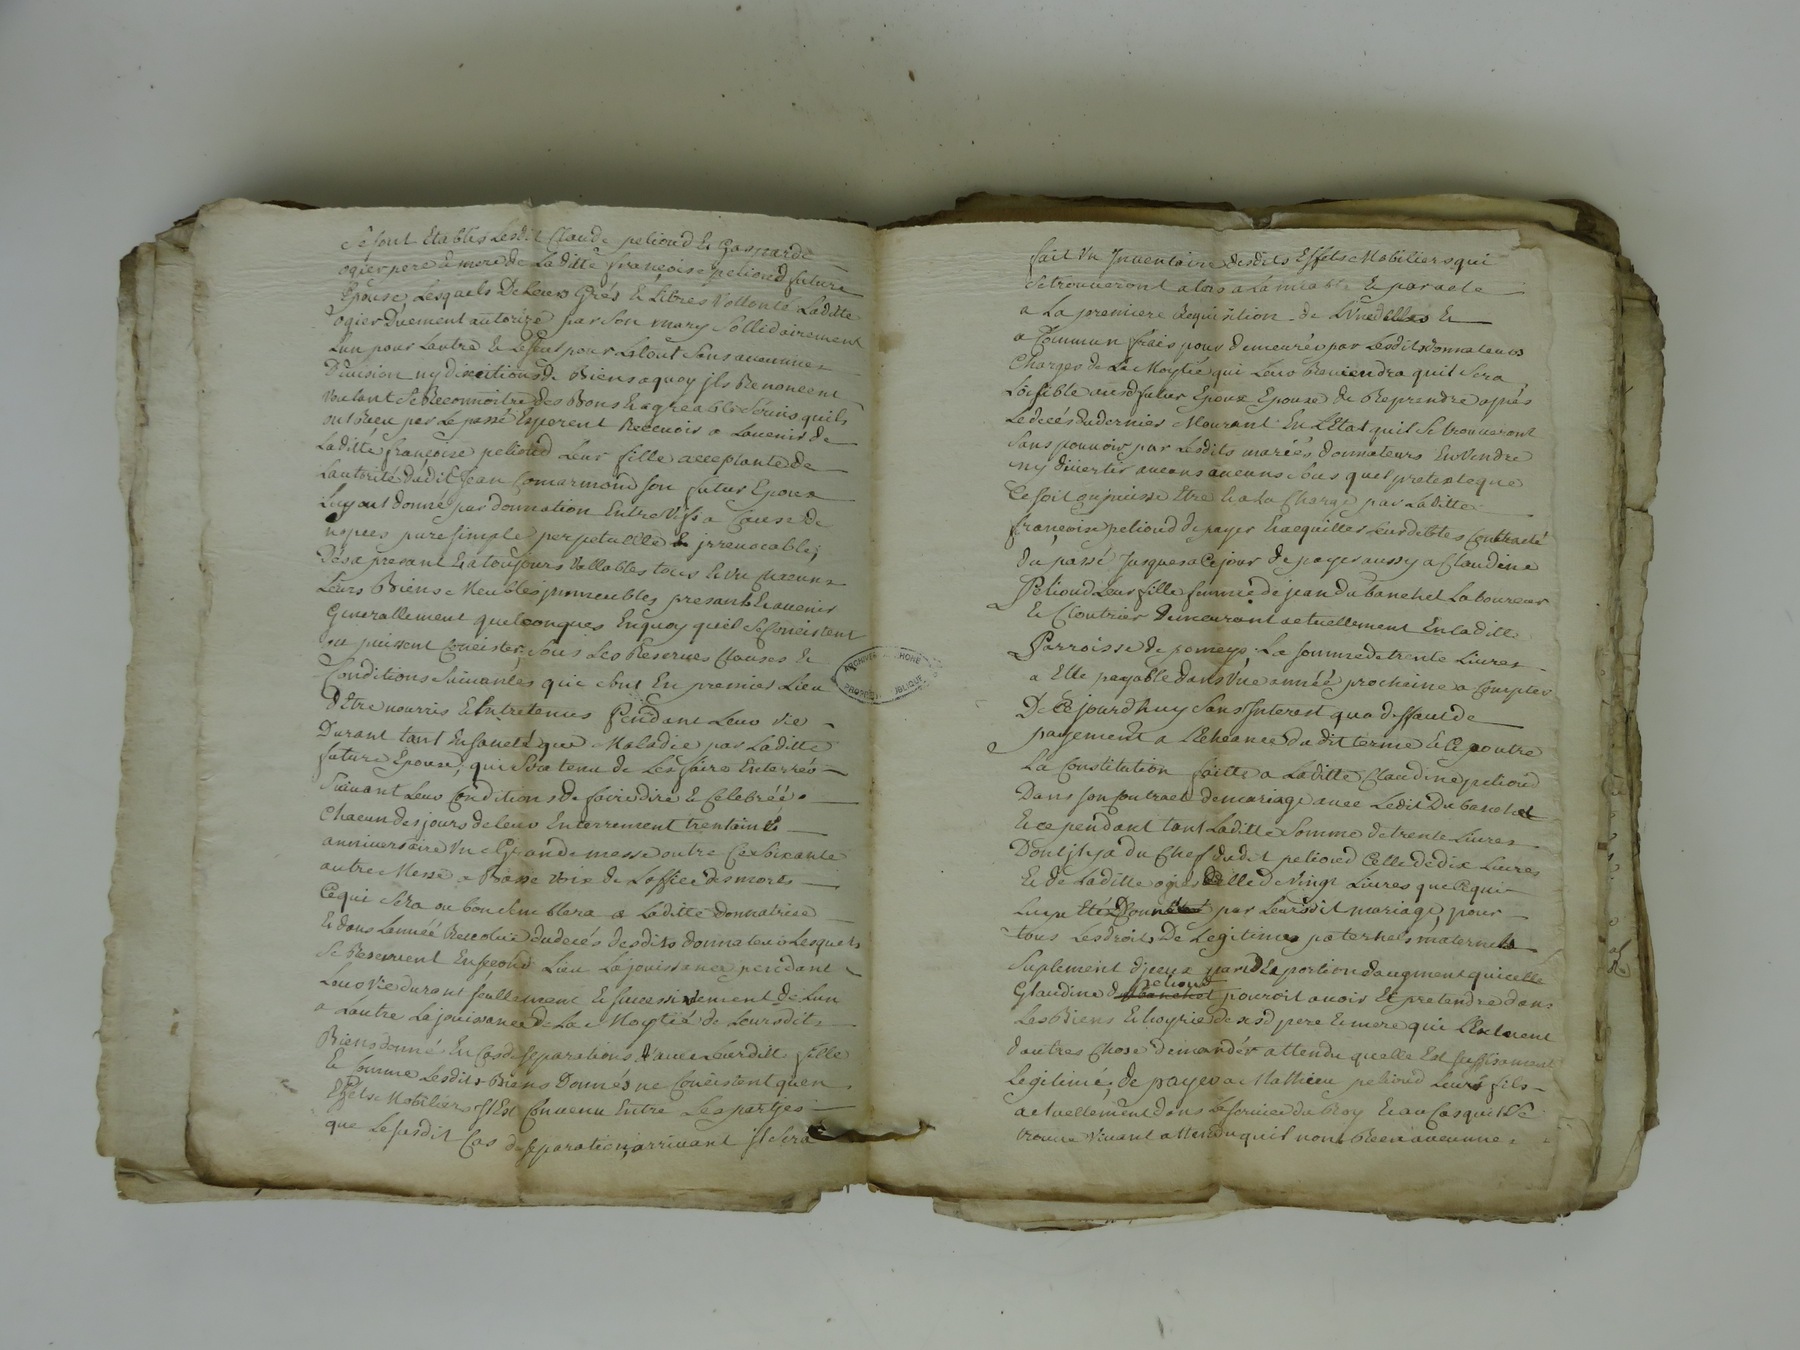 Se sont Etablis Lesdit Claude peliond Et Gasparde
ogier pere Et mere de Laditte françoise peliond future
Epouse, Lesquels De Leurs Grés Et Libres Vollonté Laditte
ogier Duement autorizé par Son mary Sollidairement
Lun pour Lautre Et Le Seul pour Le tout Sans aucunne
Division ny discutions de Biens aquoy jls Renoncent
Voulant Se Reconnoitre des Bons Et agreable Servis quils
ont Receu par Le passé Esperent Recevoir a Lavenir de
Laditte françoise peliond Leur fille acceptante de
Lautorité dudit Jean Comarmond son futur Epoux
Luy ont donné par donnation Entre Vifs a Cause de
nopces pure Simple perpetuelle Et jrrevocable;
Dés a presant Et a toujours Vallables tous Et Vn chacuns
Leurs Biens Meubles jmmeubles presant Et avenir
Generallement quelconques Enquoy quil Se Consistent
ou puissent Consister, Sous Les Reserves Clauses Et
Conditions Suivantes qui Sont En premier Lieu
D'Etre nourris Et Entretenus Pendant Leur vie
Durant tant En Santé que Maladie par Laditte
future Epouse, qui Sera tenu de Les faire Enterrés
Suivant Leur Condition de faire dire Et Celebréé
Chacun des jours de leur Enterrement trentaine
anniversaire Une Grande messe outre Ce Soixante
autre Messe a Basse Voix de Loffice des morts
Ce qui Sera ou bon Semblera a Laditte donnatrice
Et dans Lannéé Revolue du decés desdits donnateurs Lesquels
Se Reservent En Second Lieu La jouissance pendant
Leur Vie durant Seullement Et Successivement de Lun
a Lautre La jouissance de La Moytié de Leursdits
Biens donné En Cas de Separations d'avec Leurditt fille
Et Comme Lesdits Biens Donnés ne Consistent quen
Effets Mobiliers jl Est Convenu Entre Les parties
que Le Susdit Cas de Separation, arrivant jl Sera
ARCHIVES RHONE
PROPRIETE PUBLIQUE
fait Vn Inventaire desdits Effets Mobiliers qui
Se trouveront alors a Et par acte
a La premiere Requisition de Et
a Commun frais pour demeurés par Lesdits donnateurs
Charges de La Moytié qui Leur Reviendra quil Sera
Loisible ausd futur Epoux Epouse de Reprendre aprés
Le decés du dernier Mourant En L'Etat quil Se trouveront
Sans pouvoir par Lesdits mariéés donnateurs En Vendre
ny divertir aucuns Sous quel pretexte que
Ce Soit ou puisse Etre Et a La Charge par Laditte
françoise peliond de payer Et acquitter Leurs debtes Contracté
du passé Jusques a Ce jour de payer aussy a Claudine
Peliond Leur fille femme de jean Dubanchet Laboureur
Et Cloutrier Demeurant actuellement En Laditte
Parroisse de pomeys La Somme de trente Livres
a Elle payable dans Vne année prochaine a Compter
De Ce jourdhuy Sans Interest qua deffaut de
payement a Lecheance du dit terme Et Ce outre
La Constitution faitte a Laditte Claudine peliond
Dans Son Contract de mariage avec Ledit Dubanchet
Et ce pendant tant Laditte Somme de trente Livres
Dont jl y a du Chef dudit peliond Celle de dix Livres
Et de Laditte ogier Celle de Vingt Livres que Ce qui
Luy a Eté Donné par Leursdit mariage, pour
tous Les droits De Legitimes paternels maternels
Suplement dyceux part Et portion daugment quicelle
Claudine peliond pouroit avoir Et pretendre dans
Les Biens Et hoyrie de sesd pere Et mere qui
dautres Chose demander attendu quelle Est Suffisament
Legitimé, de payer a Mathieu peliond Leurs fils
actuellement dans Le Service du Roy Et au Cas quil Se
trouve Vivant attendu quil non Receu aucunne